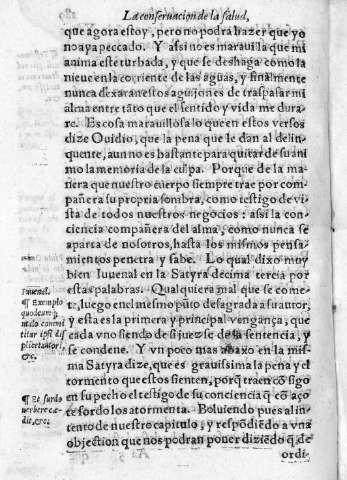 La conseruacion de la salud,
que agora estoy, pero no podra hazer que yo
no aya peccado. Y assi no es marauilla que mi
anima este turbada, y que se deshaga como la
nieue en la corriente de las aguas, y finalmente
nunca dexaran estos aguijones de traspasar mi
alma entre tãto que el sentido y vida me dura-
re. Es cosa marauillosa lo que en estos versos
dize Ouidio, que la pena que le dan al delin-
quente, aun no es bastante para quitar de su ani
mo la memoria de la culpa. Porque de la ma-
nera que nuestro cuerpo siempre trae por com-
pañera su propria sombra, como testigo de vi-
sta de todos nuestros negocios: assi la con-
ciencia compañera del alma, como nunca se
aparta de nosotros, hasta los mismos pensa-
mientos penetra y sabe. Lo qual dixo muy
bien Iuuenal en la Satyra decima tercia por
estas palabras. Qualquiera mal que se come-
te, luego en el mesmo pũto desagrada a su autor,
y esta es la primera y principal vengança, que
cada vno siendo de si juez se da la sentencia, y
se condene. Y vn poco mas abaxo en la mis-
ma Satyra dize, que es grauissima la pena y el
tormento que estos sienten, porq̃ traen cõ sigo
en su pecho el testigo de su conciencia q̃ cõ aço
te sordo los atormenta. Boluiendo pues al in-
tento de nuestro capitulo, y respõdiẽdo a vna
objection que nos podran poner diziẽdo q̃ de
ordi-
Iuuenal.
¶ Exemplo
quodcumq̃
malo commi
titur ipsi dis
plicet autori,
&c.
¶ Et surdo
verbere cæ-
dit, &c.